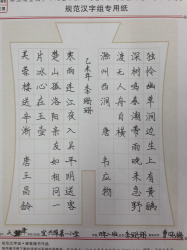 规范汉字组专用纸
独怜幽草涧边生上有黄鹂
深树鸣春潮带雨晚来急野
渡无人舟自横
滁州西涧 唐 韦应物
乙未年 李
寒雨连江夜入吴平明送客
楚山孤洛阳亲友如相问一
片冰心在玉壶
芙蓉楼送辛渐 唐 王昌龄